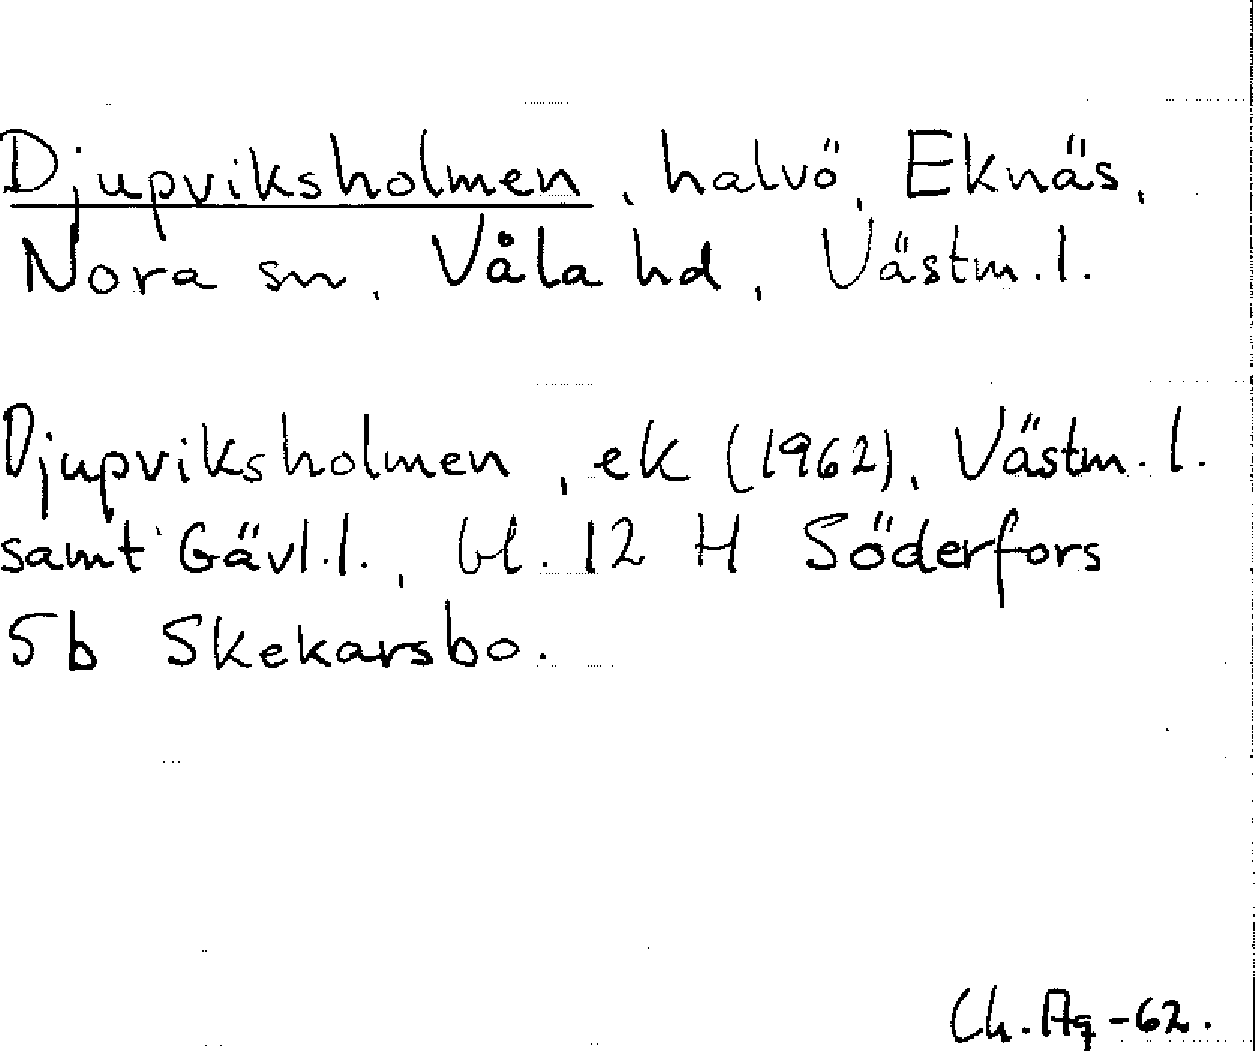 Djupviksholmen, halvö, Eknäs,
Nora sn, Våla hd, Västm.l.
Djupviksholmen, ek (1962), Västm.l.
samt Gävl.l., bl. 12 H Söderfors
5b Skekarsbo.
Ch. Ag -62.